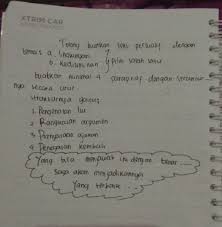 XTRIS CAR
Tolong buatkan teks persuasif dengan
tema: a. lingkungan
b. kedisiplinan } pilih salah satu
buatkan minimal 4 paragraf dengan
nya secara urut
strukturnya
1. Pengenalan Isu
2. Rangkaian argumen
3. Pernyataan ajakan
4. Penegasan kembali
Yang bisa menjawab ini dengan benar ....
saya akan menjadikannya
Yang terbaik ....